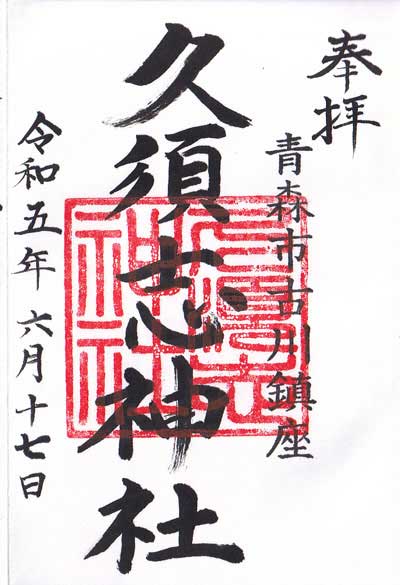 奉拝
青森市古川鎮座
久須志神社
令和五年六月十七日